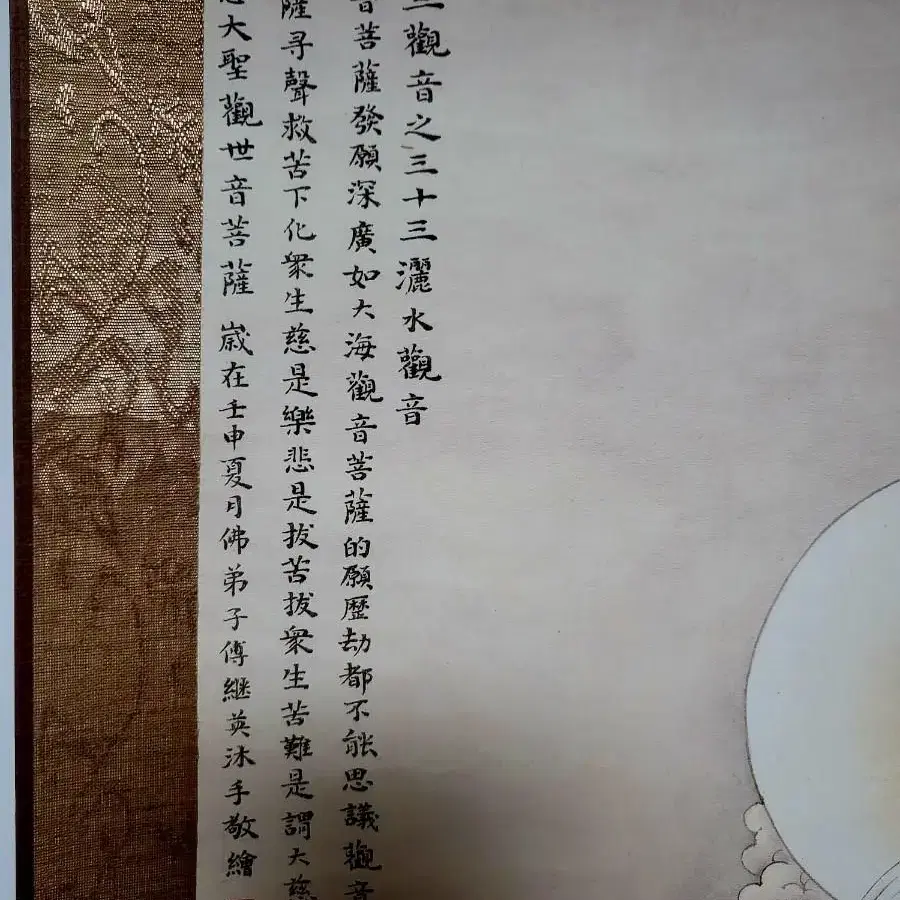 三觀音之三十三灑水觀音
音菩薩發願深廣如大海觀音菩薩的願歷劫都不能思議觀音
薩寻聲救苦下化衆生慈是樂悲是拔苦拔衆生苦難是謂大慈
大聖觀世音菩薩 歲在壬申夏月佛弟子傅繼英沐手敬繪